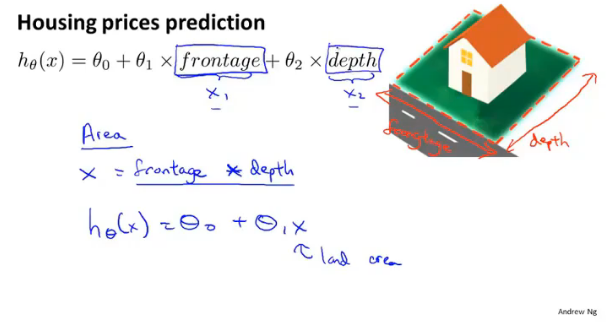 Housing prices prediction
hθ(x) = θ0 + θ1 × frontage + θ2 × depth
x1 x2
frontage
depth
Area
x = frontage * depth
hθ(x) = θ0 + θ1 x
land area
Andrew Ng